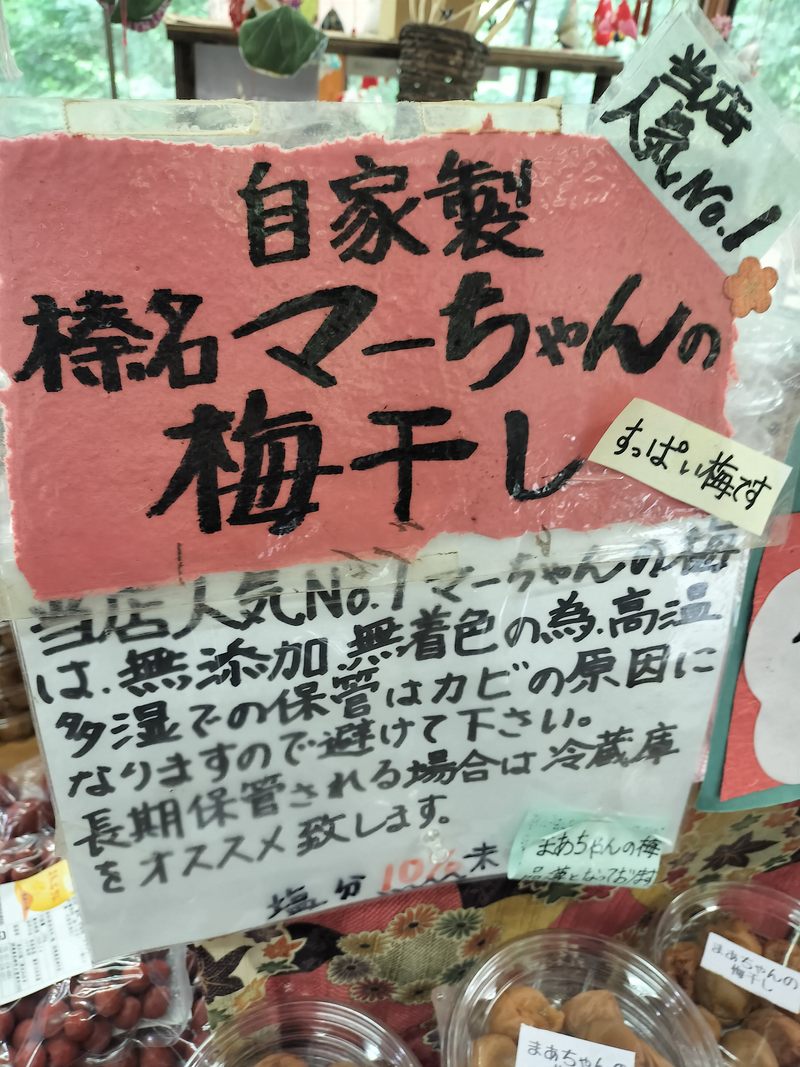 当店
人気No.1
自家製
榛名マーちゃんの
梅干し
すっぱい梅です
当店人気No.1マーちゃんの梅
は、無添加、無着色の為、高温
多湿での保管はカビの原因に
なりますので避けて下さい。
長期保管される場合は冷蔵庫
をオススメ致します。
塩分10%未
まあちゃんの梅
まあちゃんの
梅干し
まあちゃんの